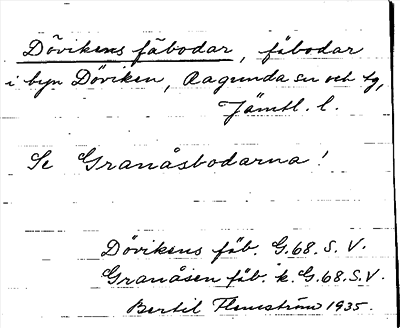 Dövikens fäbodar, fäbodar
i byn Döviken, Ragunda sn och tg,
Jämtl. l.
Se Granåsbodarna!
Dövikens fäb. G.68. S. V.
Granåsen fäb. k. G.68.S.V.
Bertil Flemström 1935.